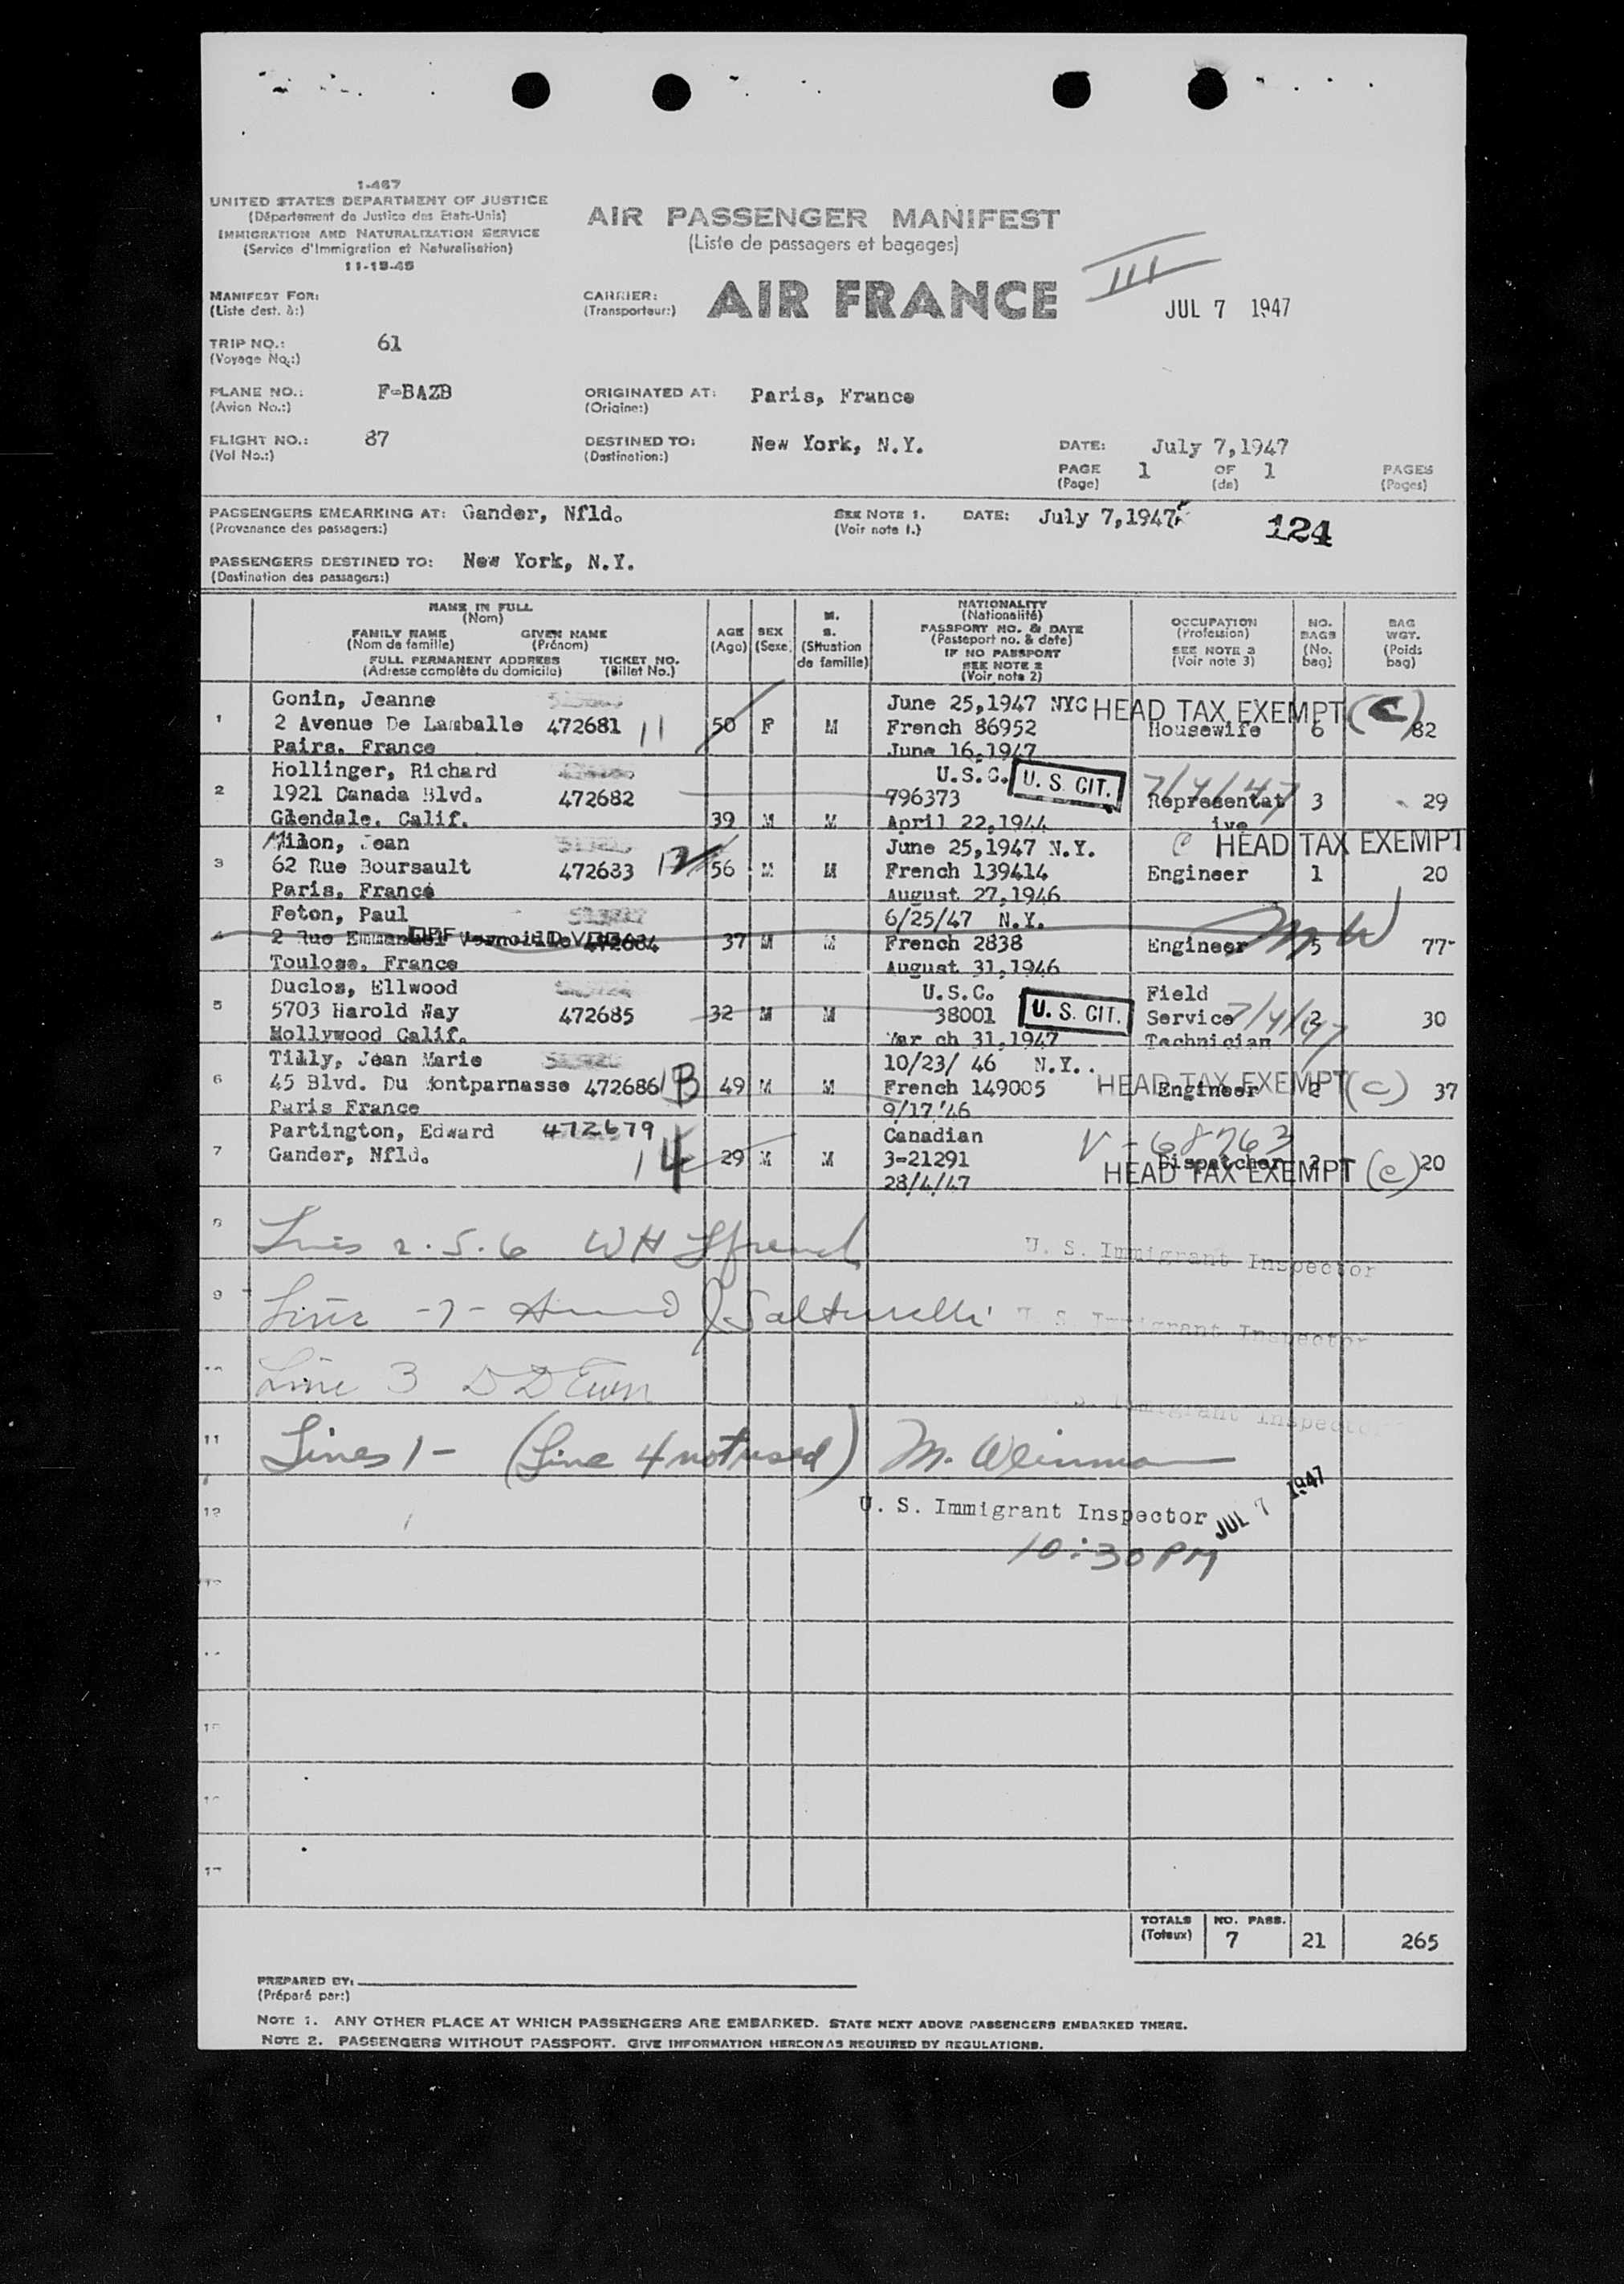 1-467
UNITED STATES DEPARTMENT OF JUSTICE
(Département de Justice des Etats-Unis)
IMMIGRATION AND NATURALIZATION SERVICE
(Service d'Immigration et Naturalisation)
11-15-45
AIR PASSENGER MANIFEST
(Liste de passagers et bagages)
III
MANIFEST FOR:
(Liste dest. à:)
CARRIER:
(Transporteur:)
AIR FRANCE
JUL 7 1947
TRIP NO.: 61
(Voyage No.:)
PLANE NO.: F-BAZB
(Avion No.:)
ORIGINATED AT: Paris, France
(Origine:)
FLIGHT NO.: 87
(Vol No.:)
DESTINED TO: New York, N.Y.
(Destination:)
DATE: July 7,1947
PAGE 1 OF 1 PAGES
(Page) (de) (Pages)
PASSENGERS EMBARKING AT: Gander, Nfld.
(Provenance des passagers:)
SEE NOTE 1.
(Voir note 1.)
DATE: July 7,1947
124
PASSENGERS DESTINED TO: New York, N.Y.
(Destination des passagers:)
NAME IN FULL
(Nom)
FAMILY NAME GIVEN NAME
(Nom de famille) (Prénom)
FULL PERMANENT ADDRESS TICKET NO.
(Adresse complète du domicile) (Billet No.)
AGE
(Age)
SEX
(Sexe)
M.
S.
(Situation
de famille)
NATIONALITY
(Nationalité)
PASSPORT NO. & DATE
(Passeport no. & date)
IF NO PASSPORT
SEE NOTE 2
(Voir note 2)
OCCUPATION
(Profession)
SEE NOTE 3
(Voir note 3)
NO.
BAGS
(No.
bag)
BAG
WGT.
(Poids
bag)
Gonin, Jeanne June 25,1947 NYC HEAD TAX EXEMPT (C)
1 2 Avenue De Lamballe 472681 11 50 F M French 86952 Housewife 6 82
Pairs, France June 16,1947
Hollinger, Richard U.S.C. U. S. CIT. 7/7/47
2 1921 Canada Blvd. 472682 796373 Representat 3 29
Glendale, Calif. 39 M M April 22,1944 ive
Milon, Jean June 25,1947 N.Y. C HEAD TAX EXEMPT
3 62 Rue Boursault 472683 12 56 M M French 139414 Engineer 1 20
Paris, France August 27,1946
Feton, Paul 6/25/47 N.Y.
4 2 Rue Emmanuel 472684 37 M M French 2838 Engineer MW 5 77-
Toulose, France August 31,1946
Duclos, Ellwood U.S.C. Field
5 5703 Harold Way 472685 32 M M 38001 U. S. CIT. Service 7/7/47 2 30
Hollywood Calif. Mar ch 31,1947 Technician
Tilly, Jean Marie 10/23/ 46 N.Y..
6 45 Blvd. Du Montparnasse 472686 13 49 M M French 149005 HEAD TAX EXEMPT (C) Engineer 2 37
Paris France 9/17/46
Partington, Edward 472679 Canadian V-68763
7 Gander, Nfld. 14 29 M M 3-21291 Dispatcher 2 20
28/4/47 HEAD TAX EXEMPT (C)
8 Lines 2.5.6 WH
U. S. Immigrant Inspector
9 Line -7-
U. S. Immigrant Inspector
Line 3
U. S. Immigrant Inspector
11 Lines 1- (Line 4 not used) M. Weinman
12 U. S. Immigrant Inspector JUL 7 1947
10:30 PM
TOTALS NO. PASS.
(Totaux) 7 21 265
PREPARED BY:
(Préparé par:)
NOTE 1. ANY OTHER PLACE AT WHICH PASSENGERS ARE EMBARKED. STATE NEXT ABOVE PASSENGERS EMBARKED THERE.
NOTE 2. PASSENGERS WITHOUT PASSPORT. GIVE INFORMATION HEREON AS REQUIRED BY REGULATIONS.